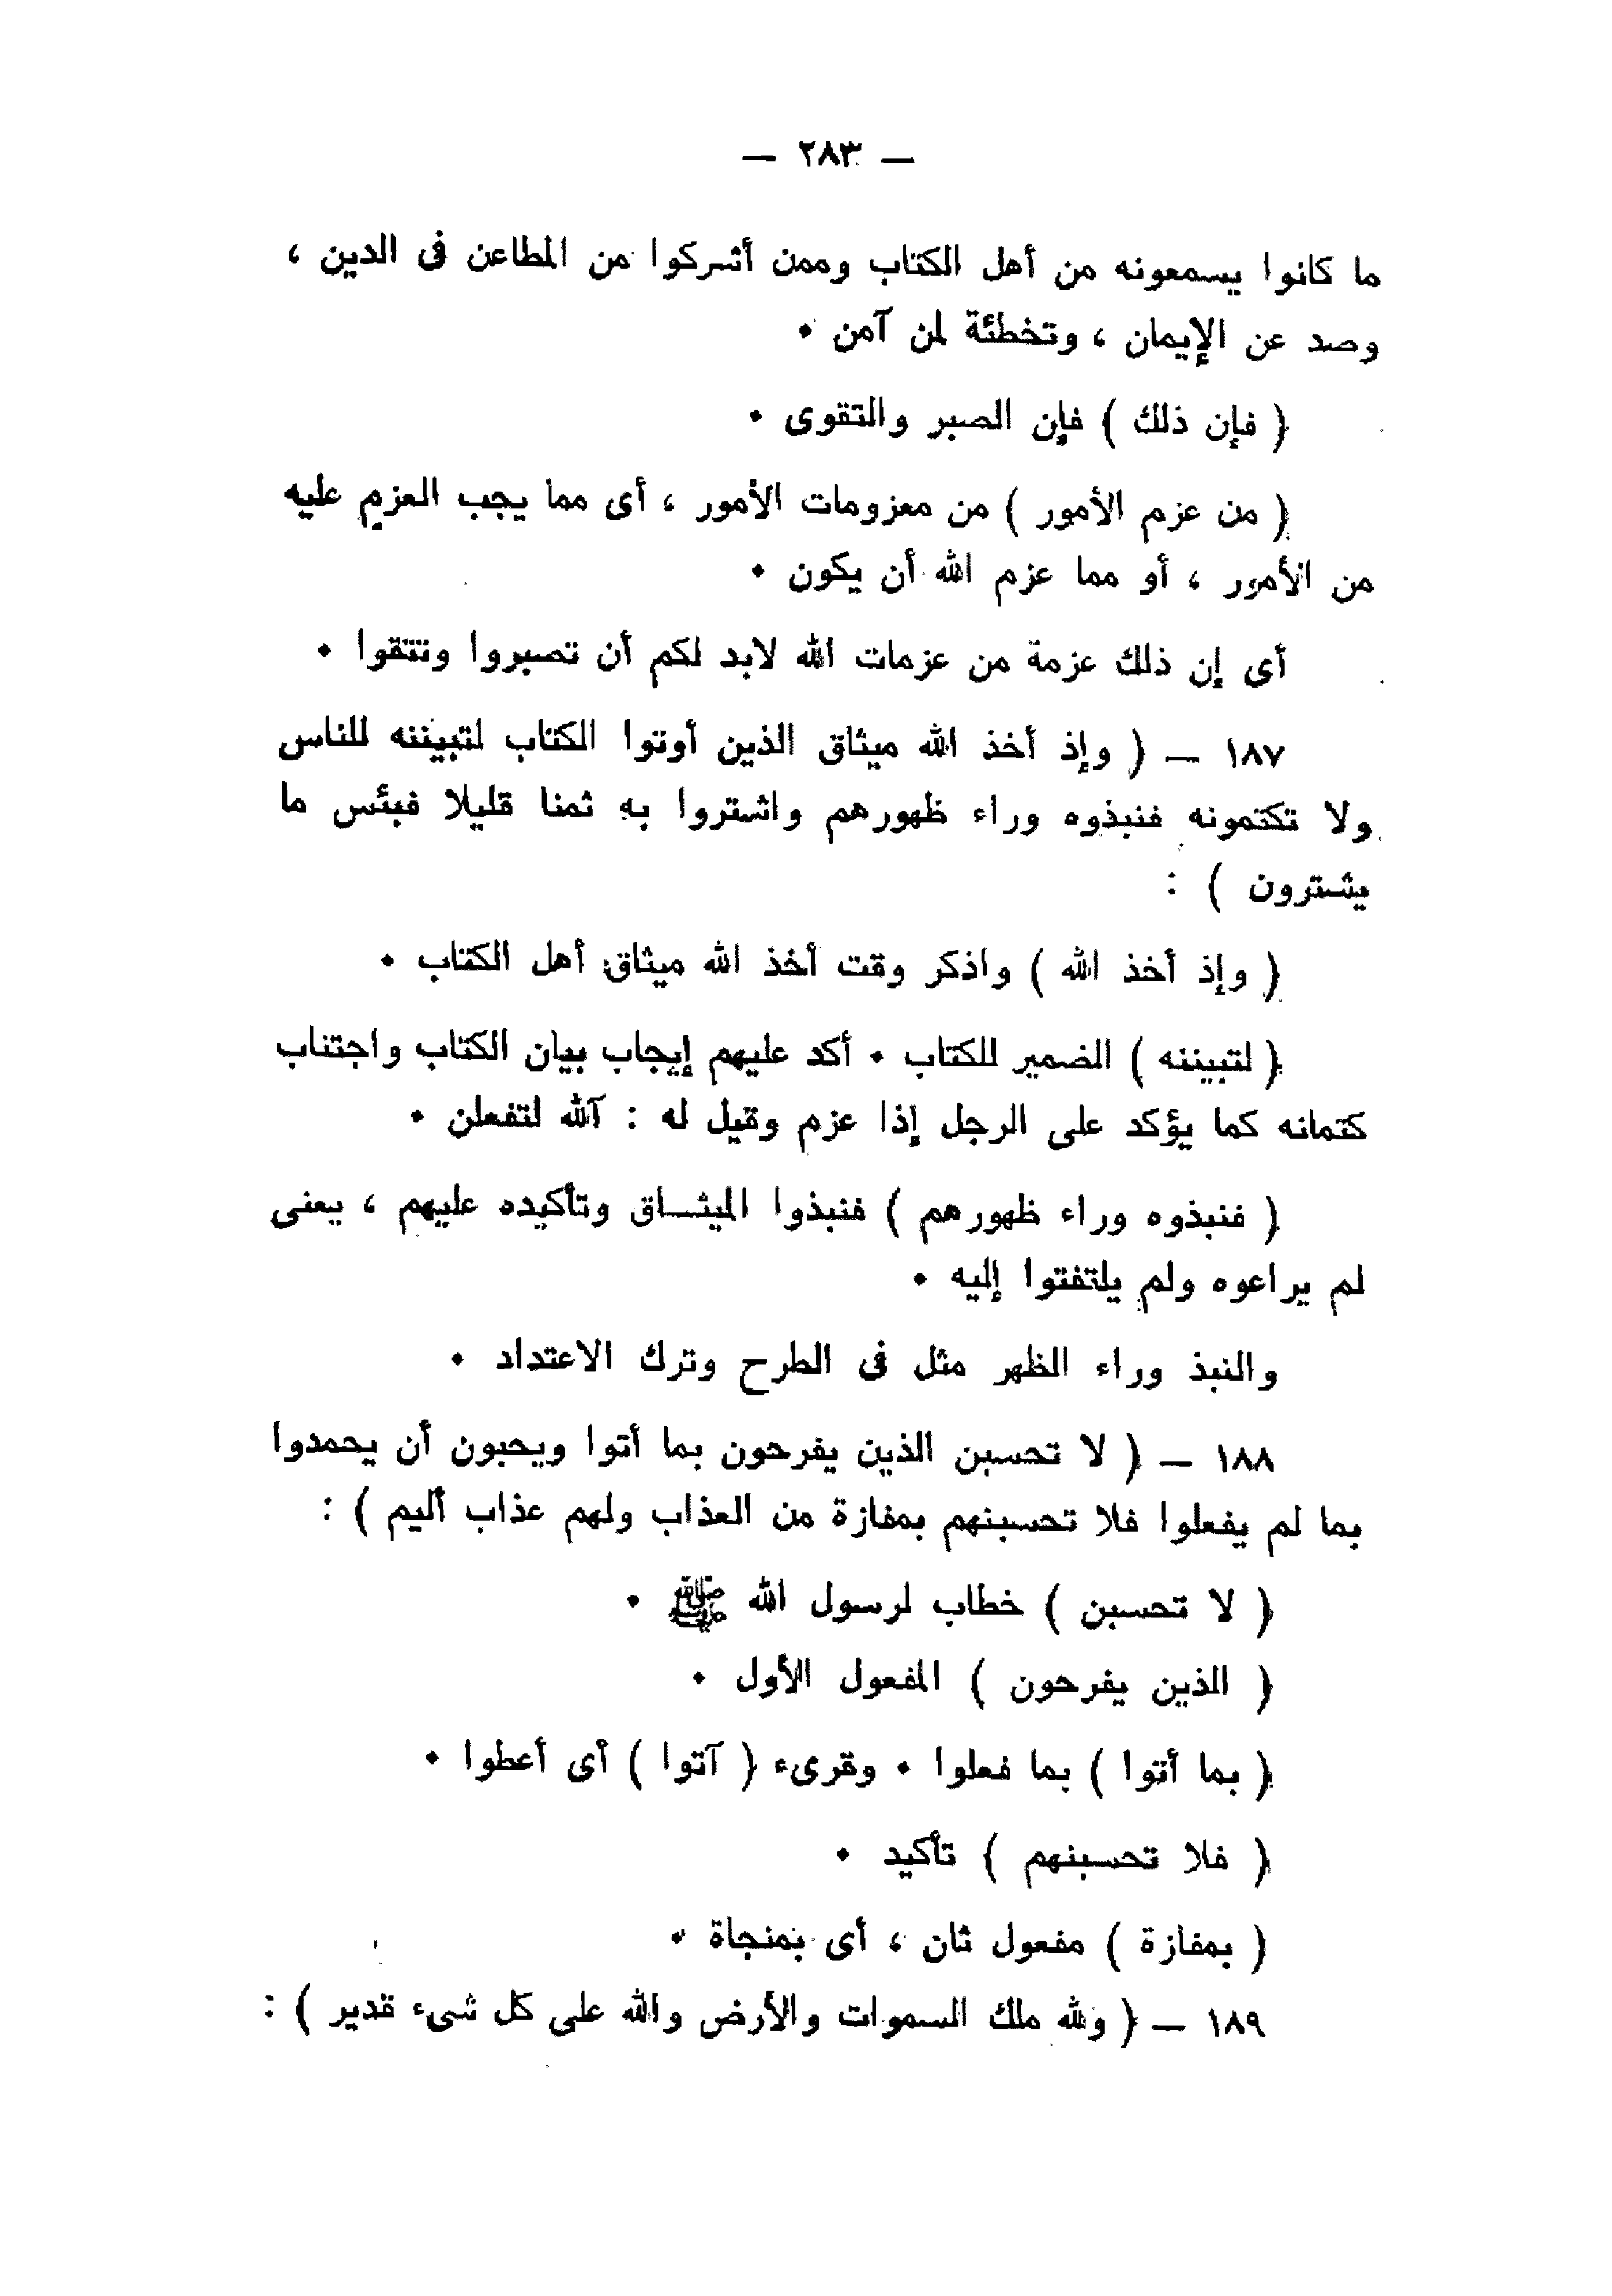 — ٢٨٣ —
ما كانوا يسمعونه من أهل الكتاب وممن أشركوا من المطاعن فى الدين ،
وصد عن الإيمان ، وتخطئة لمن آمن .
( فإن ذلك ) فإن الصبر والتقوى .
( من عزم الأمور ) من معزومات الأمور ، أى مما يجب العزم عليه
من الأمور ، أو مما عزم الله أن يكون .
أى إن ذلك عزمة من عزمات الله لابد لكم أن تصبروا وتتقوا .
١٨٧ — ( وإذ أخذ الله ميثاق الذين أوتوا الكتاب لتبيننه للناس
ولا تكتمونه فنبذوه وراء ظهورهم واشتروا به ثمنا قليلا فبئس ما
يشترون ) :
( وإذ أخذ الله ) واذكر وقت أخذ الله ميثاق أهل الكتاب .
( لتبيننه ) الضمير للكتاب . أكد عليهم إيجاب بيان الكتاب واجتناب
كتمانه كما يؤكد على الرجل إذا عزم وقيل له : آلله لتفعلن .
( فنبذوه وراء ظهورهم ) فنبذوا الميثـــاق وتأكيده عليهم ، يعنى
لم يراعوه ولم يلتفتوا إليه .
والنبذ وراء الظهر مثل فى الطرح وترك الاعتداد .
١٨٨ — ( لا تحسبن الذين يفرحون بما أتوا ويحبون أن يحمدوا
بما لم يفعلوا فلا تحسبنهم بمفازة من العذاب ولهم عذاب أليم ) :
( لا تحسبن ) خطاب لرسول الله ﷺ .
( الذين يفرحون ) المفعول الأول .
( بما أتوا ) بما فعلوا . وقرىء ( آتوا ) أى أعطوا .
( فلا تحسبنهم ) تأكيد .
( بمفازة ) مفعول ثان ، أى بمنجاة .
١٨٩ — ( ولله ملك السموات والأرض والله على كل شىء قدير ) :